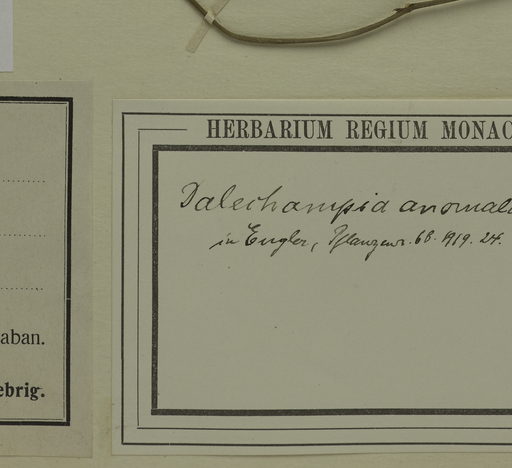 HERBARIUM REGIUM MONAC
Dalechampia anomala
in Engler, Pflanzenr. 68. 1919. 24.
aban.
ebrig.